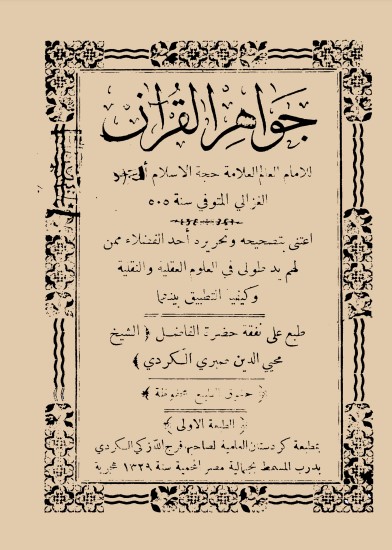 جواهر القرآن
للامام العالم العلامة حجة الاسلام
الغزالي المتوفي سنة ٥٠٥
اعتنى بتصحيحه وتحريره أحد الفضلاء ممن
لهم يد طولى في العلوم العقلية والنقلية
وكيفية التطبيق بينهما
طبع على نفقة حضرة الفاضل ﴿ الشيخ
محيي الدين صبري الكردي ﴾
﴿ حقوق الطبع محفوظة ﴾
﴿ الطبعة الاولى ﴾
بمطبعة كردستان العلمية لصاحبها فرج الله زكي الكردي
بدرب المسمط بجمالية مصر المحمية سنة ١٣٢٩ هجرية